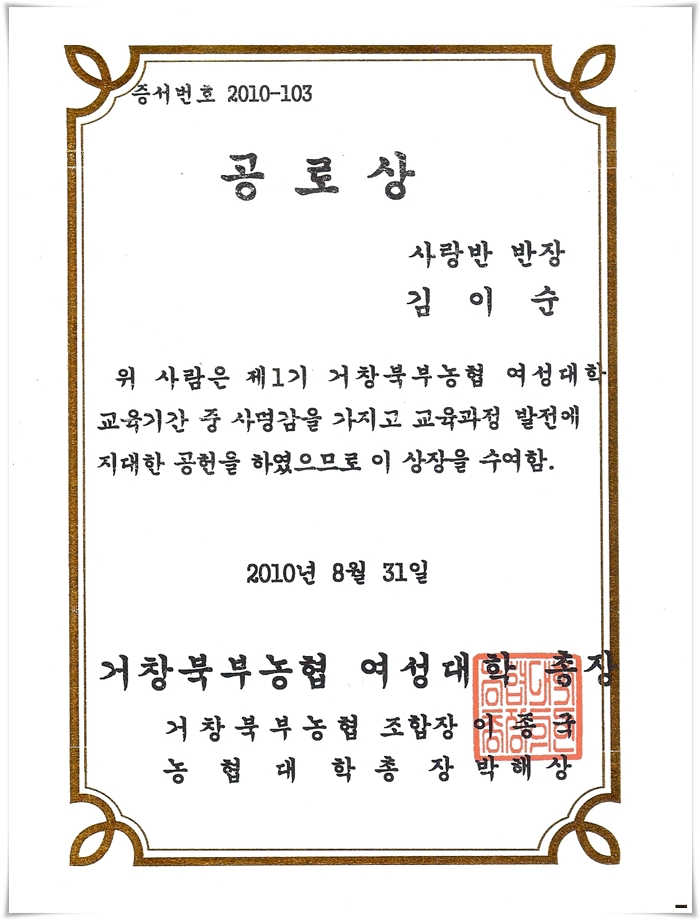 증서번호 2010-103
공 로 상
사랑반 반장
김 이 순
위 사람은 제1기 거창북부농협 여성대학
교육기간 중 사명감을 가지고 교육과정 발전에
지대한 공헌을 하였으므로 이 상장을 수여함.
2010년 8월 31일
거창북부농협 여성대학 총장
거창북부농협 조합장 이 종 국
농 협 대 학 총 장 박 해 상